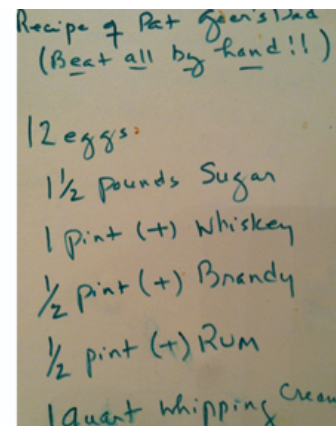 Recipe of Pat Geer's Dad
(Beat all by hand!!)
12 eggs.
1 1/2 pounds Sugar
1 pint (+) Whiskey
1/2 pint (+) Brandy
1/2 pint (+) Rum
1 quart whipping Cream